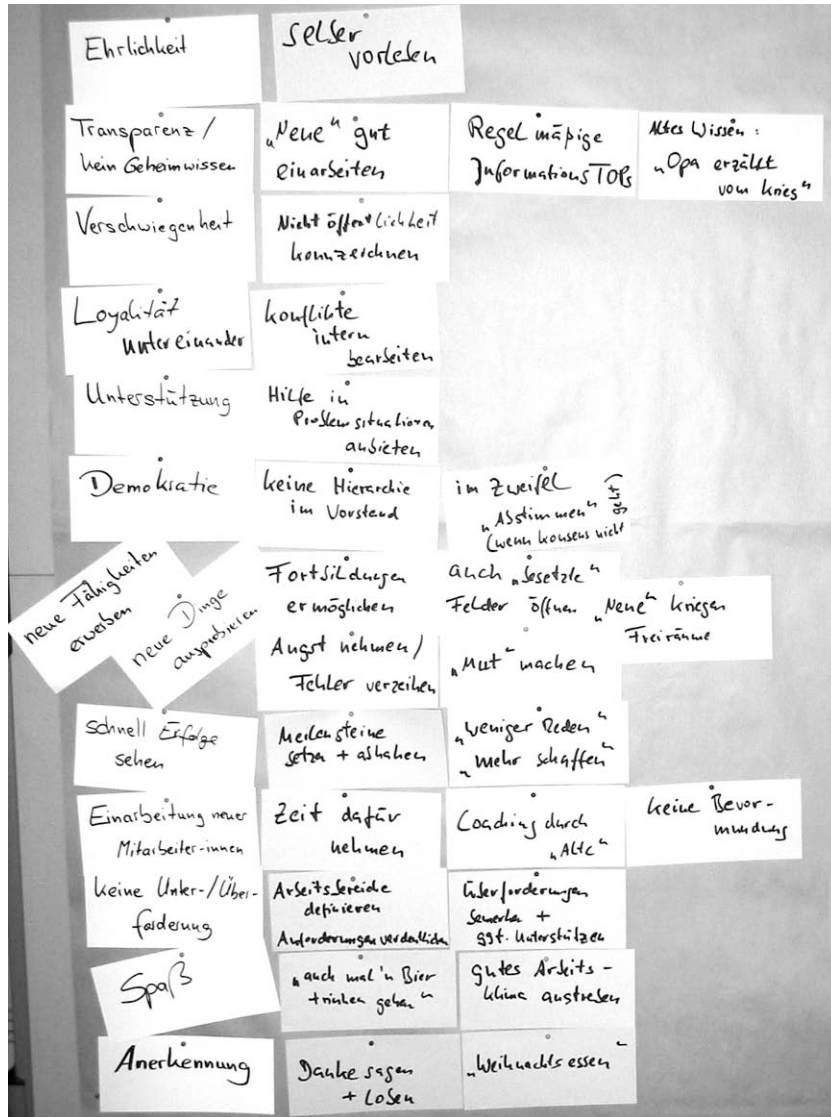 Ehrlichkeit
selber
vorleben
Transparenz /
kein Geheimwissen
„Neue“ gut
einarbeiten
Regelmäßige
InformationsTOPs
Altes Wissen:
„Opa erzählt
vom Krieg“
Verschwiegenheit
Nichtöffentlichkeit
kennzeichnen
Loyalität
untereinander
Konflikte
intern
bearbeiten
Unterstützung
Hilfe in
Problemsituationen
anbieten
Demokratie
keine Hierarchie
im Vorstand
im Zweifel
„Abstimmen“
(wenn Konsens nicht
geht)
neue Fähigkeiten
erwerben
neue Dinge
ausprobieren
Fortbildungen
ermöglichen
auch „besetzte“
Felder öffnen
„Neue“ kriegen
Freiräume
Angst nehmen /
Fehler verzeihen
„Mut“ machen
schnell Erfolge
sehen
Meilensteine
setzen + abhaken
„weniger Reden“
„mehr schaffen“
Einarbeitung neuer
Mitarbeiter-innen
Zeit dafür
nehmen
Coaching durch
„Alte“
keine Bevor-
mundung
keine Unter-/Über-
forderung
Arbeitsbereiche
definieren
Anforderungen verdeutlichen
Überforderungen
bemerken +
ggf. Unterstützen
Spaß
„auch mal'n Bier
trinken gehen“
gutes Arbeits-
klima anstreben
Anerkennung
Danke sagen
+ Loben
„Weihnachtsessen“